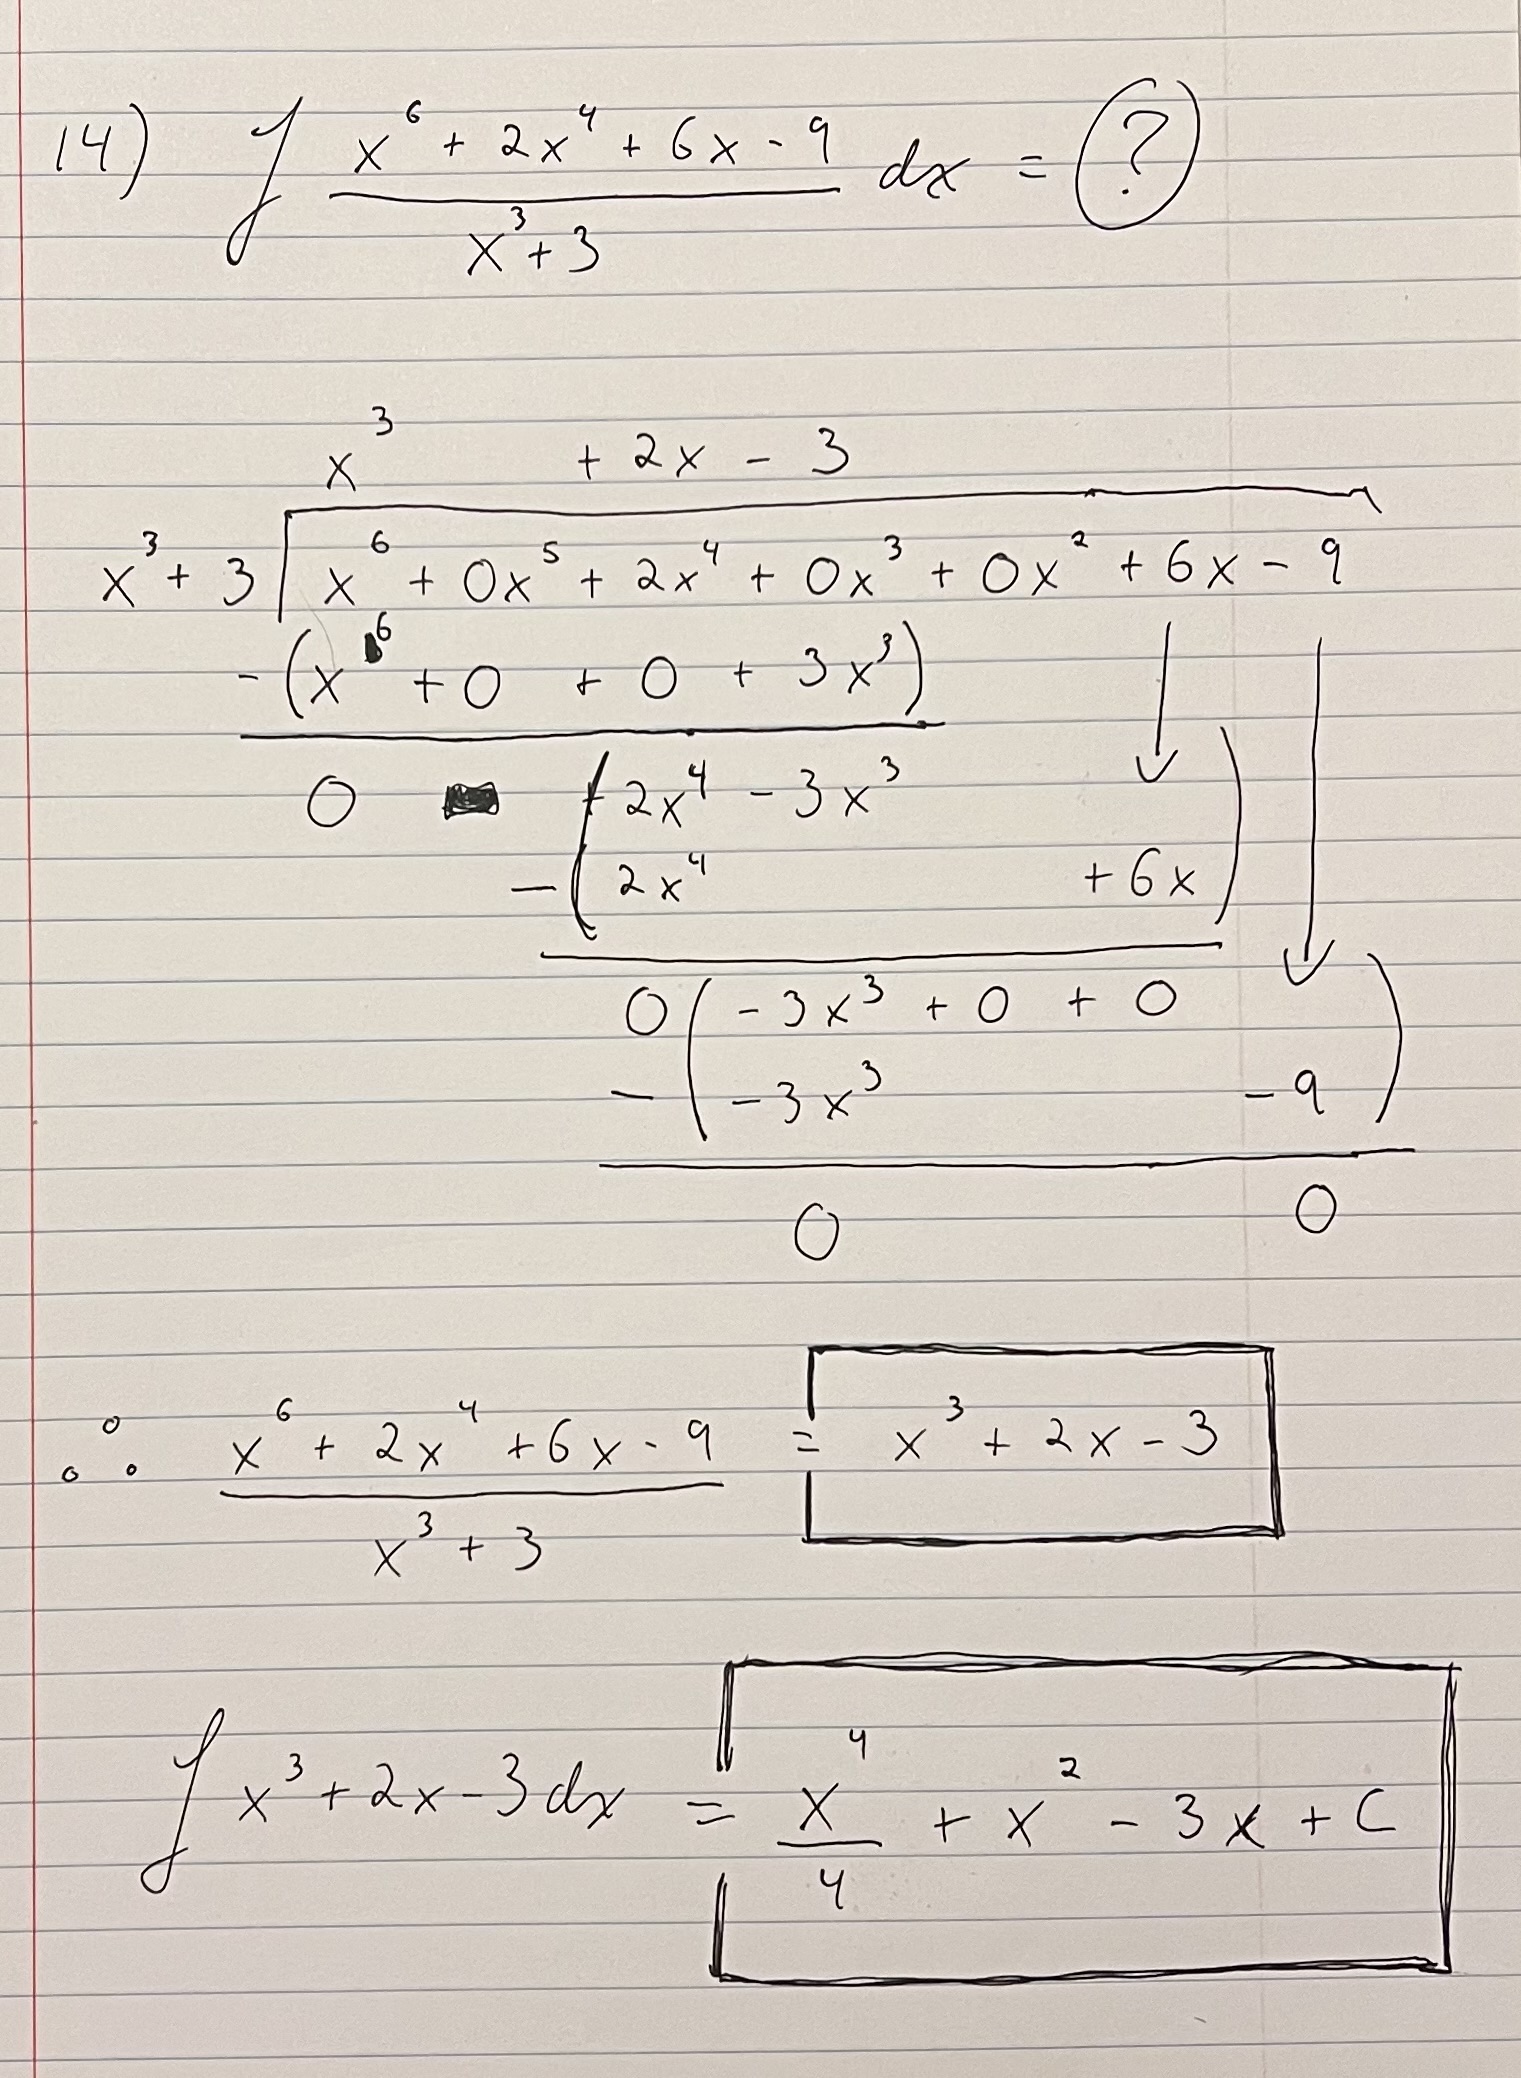 14) ∫ x⁶ + 2x⁴ + 6x - 9 dx = ?
x³ + 3
x³ + 2x - 3
x³ + 3 x⁶ + 0x⁵ + 2x⁴ + 0x³ + 0x² + 6x - 9
- (x⁶ + 0 + 0 + 3x³)
0 + 2x⁴ - 3x³
- (2x⁴ + 6x)
0 ( - 3x³ + 0 + 0
- ( - 3x³ - 9 )
0 0
∴ x⁶ + 2x⁴ + 6x - 9 = x³ + 2x - 3
x³ + 3
∫ x³ + 2x - 3 dx = x⁴ + x² - 3x + C
4